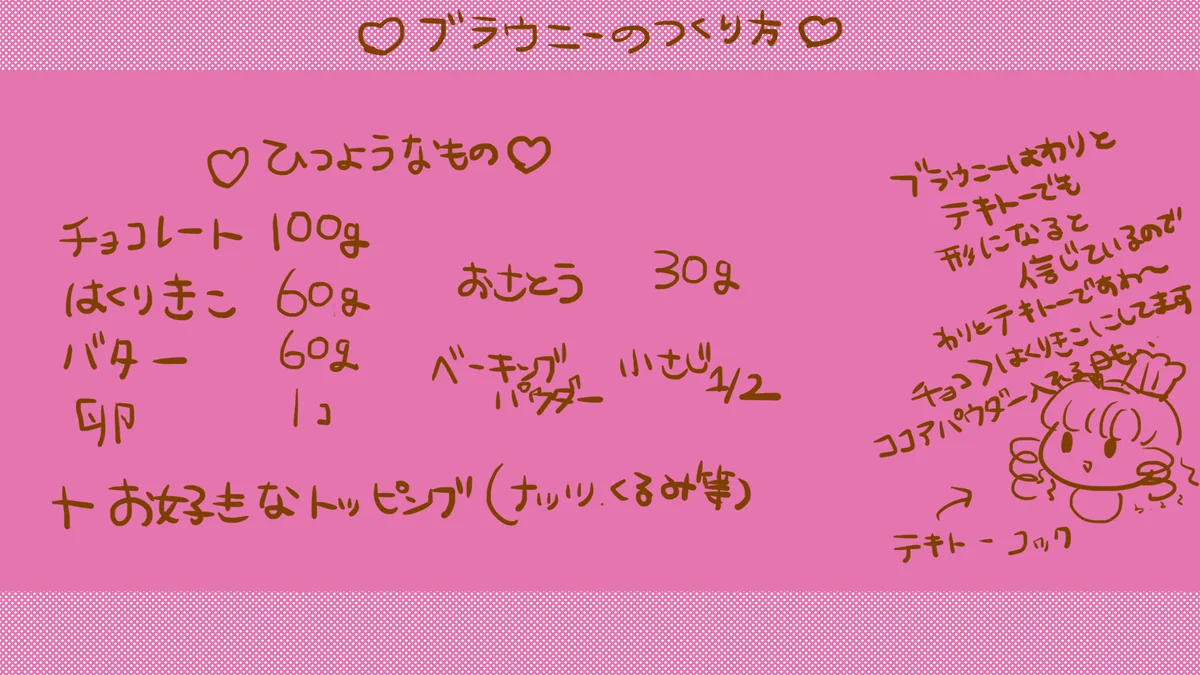 ♡ブラウニーのつくり方♡
♡ひつようなもの♡
チョコレート 100g
はくりきこ 60g
バター 60g
卵 1コ
おさとう 30g
ベーキングパウダー 小さじ1/2
+お好きなトッピング(ナッツ.くるみ等)
ブラウニーはわりと
テキトーでも
形になると
信じているので
わりとテキトーですわ〜
チョコ>はくりきこにしてます
ココアパウダー入れる日も、、
テキトーコック